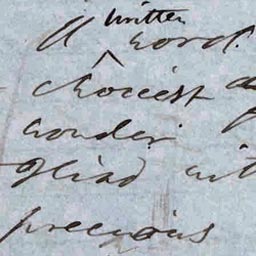 A written word.
choicest
wonder.
Iliad wit
precious